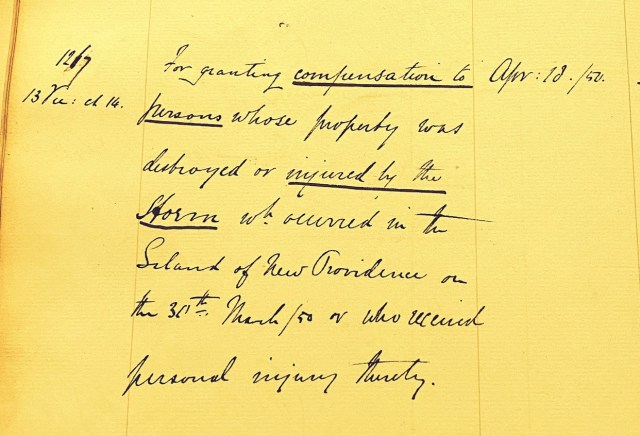 1217
For granting compensation to Apr: 18. /50.
13 Vic: ch 14.
persons whose property was
destroyed or injured by the
Storm wh. occurred in the
Island of New Providence on
the 30th March /50 or who received
personal injury thereby.